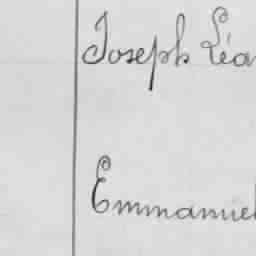 Joseph Léa
Emmanuel